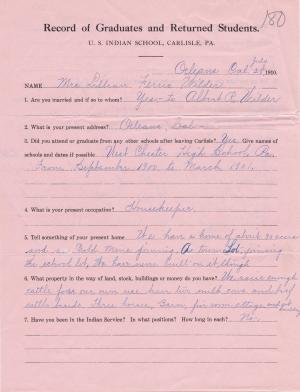 180
Record of Graduates and Returned Students.
U. S. INDIAN SCHOOL, CARLISLE, PA.
Orleans Cal July 28 1910.
NAME Mrs Lillian Ferris Wilder
1. Are you married and if so to whom? Yes - to Albert R. Wilder
2. What is your present address? Orleans, Cal -
3. Did you attend or graduate from any other schools after leaving Carlisle? Yes Give names of
schools and dates if possible West Chester High School, Pa.
From September 1900 to March 1901.
4. What is your present occupation? Housekeeper
5. Tell something of your present home. We have a home of about 20 acres
and a Gold Mine joining. A town Lot joining
the school lot. We have ours built on it
6. What property in the way of land, stock, buildings or money do you have? We raise enough
cattle for our own use have two milk cows and beef
cattle besides three horses, Barn, five room cottage and
7. Have you been in the Indian Service? In what positions? How long in each? No.